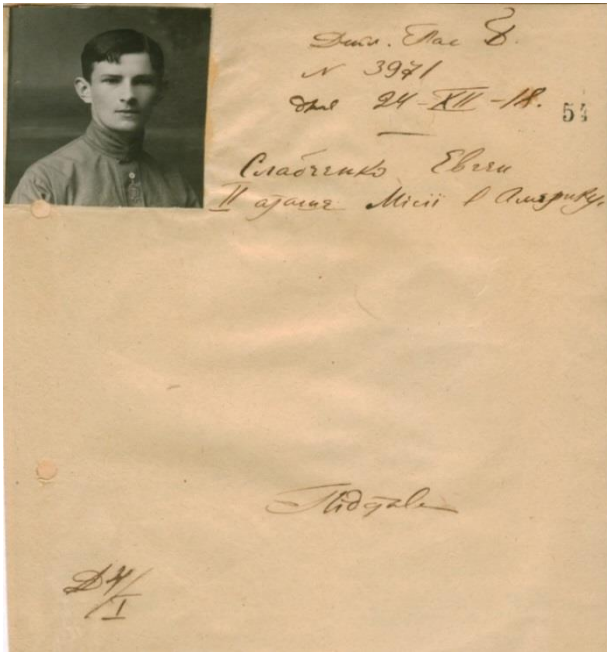 Дипл. Пас
N 3971
дня 24-XII-18.
54
Слабченко Евген
II аташе Місії в Америку.